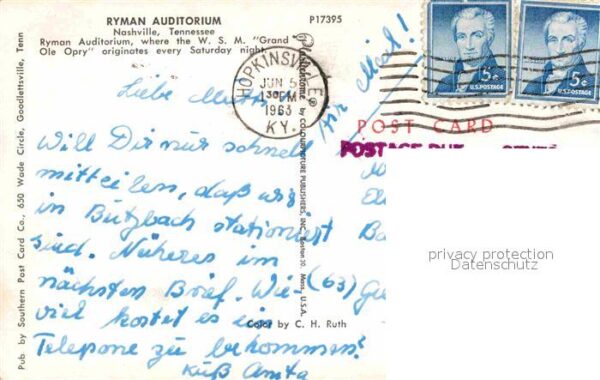 RYMAN AUDITORIUM
Nashville, Tennessee
Ryman Auditorium, where the W. S. M. "Grand
Ole Opry" originates every Saturday night.
P17395
Pub. by Southern Post Card Co., 650 Wade Circle, Goodlettsville, Tenn
HOPKINSVILLE
JUN 5
PM
1963
KY.
5¢
U.S. POSTAGE
5¢
U.S. POSTAGE
Air Mail!
POST CARD
POSTAGE DUE
Liebe Mutti
Will Dir nur schnell
mitteilen, daß wir
in Butzbach stationiert
sind. Näheres im
nächsten Brief. Wie-
viel kostet es ein
Telepone zu bekommen?
Kuß Anita
(63)
Plastichrome ® by COLOURPICTURE PUBLISHERS, INC. Boston 30, Mass. U.S.A.
Color by C. H. Ruth
privacy protection
Datenschutz